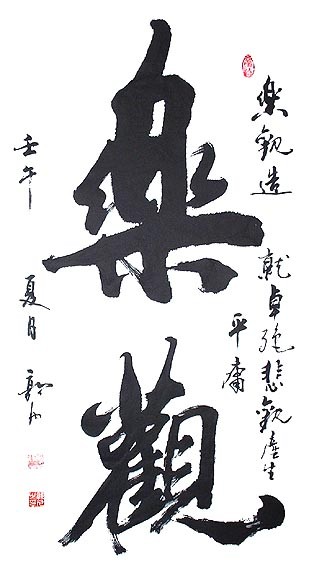 樂觀
樂觀造
就卓絕悲觀產生
平庸
壬午
夏月